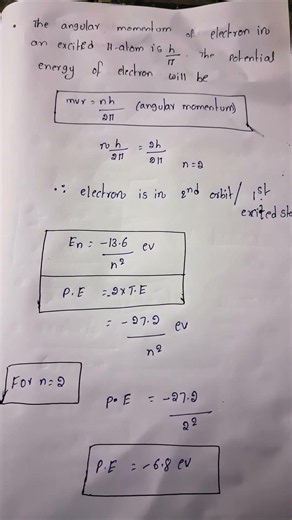 • The angular momentum of electron in
an excited H-atom is h/π. The potential
energy of electron will be
mvr = nh/2π (angular momentum)
nh/2π = 2h/2π n=2
∴ electron is in 2nd orbit/1st
excited sta
En = -13.6/n² ev
P.E = 2×T.E
= -27.2/n² ev
For n=2
P.E = -27.2/2²
P.E = -6.8 ev